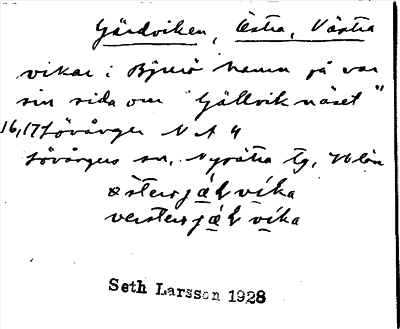 Gärdviken, Östra, Västra
vikar i Bjurö hamn på var
sin sida om "Gällviknäset"
16,17 Lövånger N A 4
Lövångers sn, Nysätra tg, Vb län
östersjä́lvíka
vestersjä́lvíka
Seth Larsson 1928